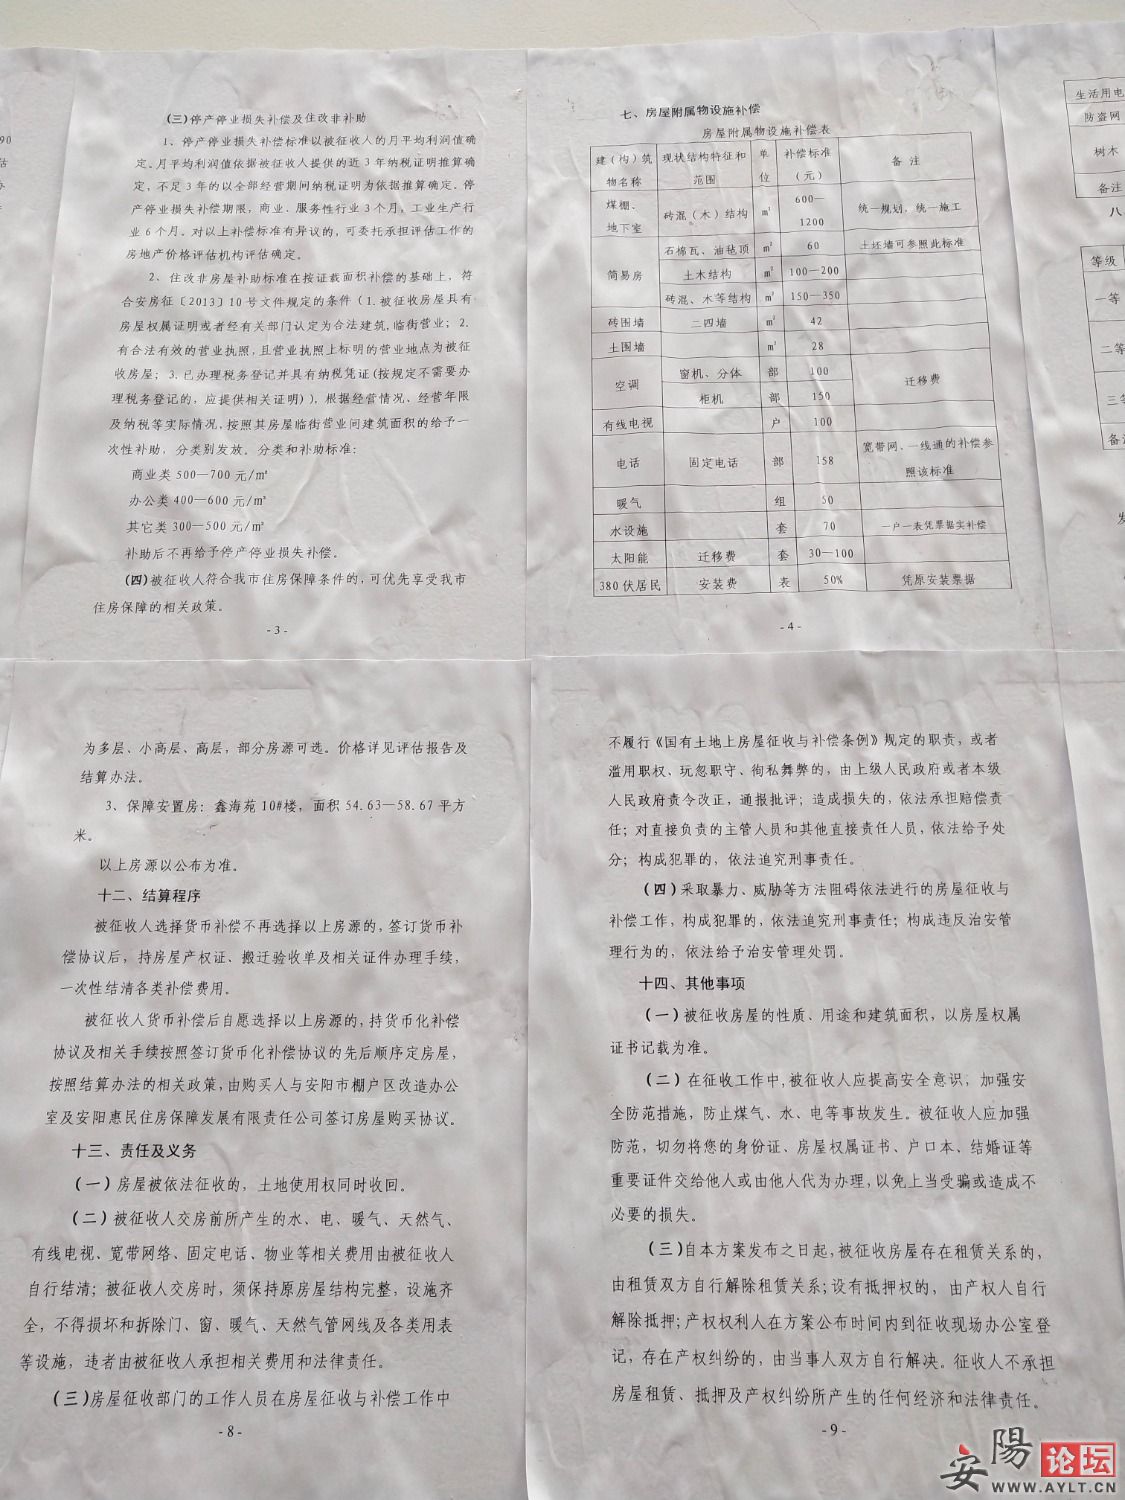 (三)停产停业损失补偿及住改非补助
1、停产停业损失补偿标准以被征收人的月平均利润值确
定、月平均利润值依据被征收人提供的近3年纳税证明推算确
定，不足3年的以全部经营期间纳税证明为依据推算确定、停
产停业损失补偿期限，商业、服务性行业3个月，工业生产行
业6个月。对以上补偿标准有异议的，可委托承担评估工作的
房地产价格评估机构评估确定。
2、住改非房屋补助标准在按证载面积补偿的基础上，符
合安房征〔2013〕10号文件规定的条件（1.被征收房屋具有
房屋权属证明或者经有关部门认定为合法建筑,临街营业；2.
有合法有效的营业执照,且营业执照上标明的营业地点为被征
收房屋；3.已办理税务登记并具有纳税凭证(按规定不需要办
理税务登记的，应提供相关证明)），根据经营情况、经营年限
及纳税等实际情况,按照其房屋临街营业间建筑面积的给予一
次性补助，分类别发放。分类和补助标准：
商业类500—700元/㎡
办公类400—600元/㎡
其它类300—500元/㎡
补助后不再给予停产停业损失补偿。
(四)被征收人符合我市住房保障条件的,可优先享受我市
住房保障的相关政策。
- 3 -
七、房屋附属物设施补偿
房屋附属物设施补偿表
建（构）筑物名称 现状结构特征和范围 单位 补偿标准（元） 备 注
煤棚、地下室 砖混（木）结构 ㎡ 600—1200 统一规划，统一施工
简易房 石棉瓦、油毡顶 ㎡ 60 土坯墙可参照此标准
土木结构 ㎡ 100—200
砖混、木等结构 ㎡ 150—350
砖围墙 二四墙 ㎡ 42
土围墙 ㎡ 28
空调 窗机、分体 部 100 迁移费
柜机 部 150
有线电视 户 100
电话 固定电话 部 158 宽带网、一线通的补偿参照该标准
暖气 组 50
水设施 套 70 一户一表凭票据实补偿
太阳能 迁移费 套 30—100
380伏居民 安装费 表 50% 凭原安装票据
- 4 -
生活用电
防盗网
树木
备注
八
等级
一等
二等
三等
备注
为多层、小高层、高层，部分房源可选。价格详见评估报告及
结算办法。
3、保障安置房：鑫海苑10#楼，面积54.63—58.67平方
米。
以上房源以公布为准。
十二、结算程序
被征收人选择货币补偿不再选择以上房源的,签订货币补
偿协议后，持房屋产权证、搬迁验收单及相关证件办理手续,
一次性结清各类补偿费用。
被征收人货币补偿后自愿选择以上房源的,持货币化补偿
协议及相关手续按照签订货币化补偿协议的先后顺序定房屋,
按照结算办法的相关政策,由购买人与安阳市棚户区改造办公
室及安阳惠民住房保障发展有限责任公司签订房屋购买协议。
十三、责任及义务
(一)房屋被依法征收的，土地使用权同时收回。
(二)被征收人交房前所产生的水、电、暖气、天然气、
有线电视、宽带网络、固定电话、物业等相关费用由被征收人
自行结清；被征收人交房时，须保持原房屋结构完整，设施齐
全，不得损坏和拆除门、窗、暖气、天然气管网线及各类用表
等设施，违者由被征收人承担相关费用和法律责任。
(三)房屋征收部门的工作人员在房屋征收与补偿工作中
- 8 -
不履行《国有土地上房屋征收与补偿条例》规定的职责，或者
滥用职权、玩忽职守、徇私舞弊的，由上级人民政府或者本级
人民政府责令改正，通报批评；造成损失的,依法承担赔偿责
任；对直接负责的主管人员和其他直接责任人员,依法给予处
分；构成犯罪的，依法追究刑事责任。
(四)采取暴力、威胁等方法阻碍依法进行的房屋征收与
补偿工作,构成犯罪的,依法追究刑事责任；构成违反治安管
理行为的，依法给予治安管理处罚。
十四、其他事项
(一)被征收房屋的性质、用途和建筑面积，以房屋权属
证书记载为准。
(二)在征收工作中,被征收人应提高安全意识，加强安
全防范措施，防止煤气、水、电等事故发生。被征收人应加强
防范，切勿将您的身份证、房屋权属证书、户口本、结婚证等
重要证件交给他人或由他人代为办理,以免上当受骗或造成不
必要的损失。
(三)自本方案发布之日起,被征收房屋存在租赁关系的，
由租赁双方自行解除租赁关系;设有抵押权的，由产权人自行
解除抵押;产权权利人在方案公布时间内到征收现场办公室登
记，存在产权纠纷的，由当事人双方自行解决。征收人不承担
房屋租赁、抵押及产权纠纷所产生的任何经济和法律责任。
- 9 -
安陽论坛
WWW.AYLT.CN